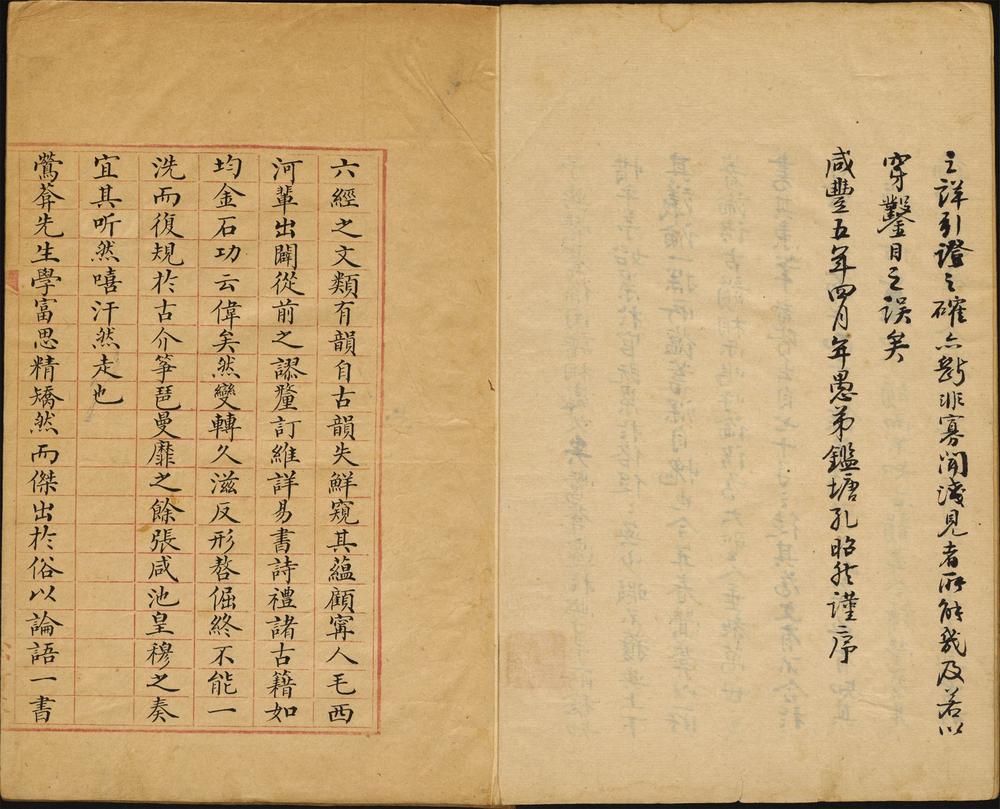 之詳引證之確亦斷非寡聞淺見者所能幾及若以
穿鑿目之誤矣
咸豐五年四月年愚弟鑑塘孔昭然謹序
六經之文類有韻自古韻失鮮窺其蘊顧寧人毛西
河輩出闢從前之謬釐訂維詳易書詩禮諸古籍如
均金石功云偉矣然變轉久滋反形嗸倔終不能一
洗而復規於古介箏琶曼靡之餘張咸池皇穆之奏
宜其听然嘻汗然走也
鶯莽先生學富思精矯然而傑出於俗以論語一書